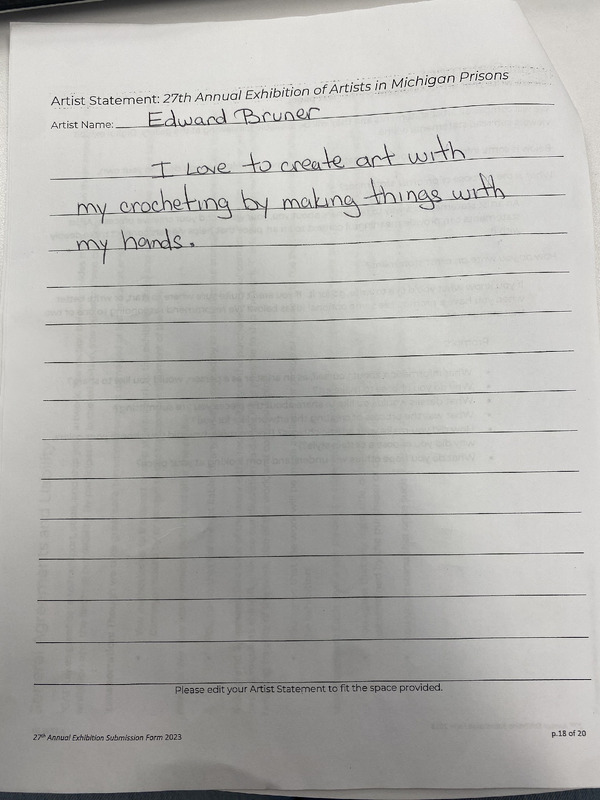 Artist Statement: 27th Annual Exhibition of Artists in Michigan Prisons
Artist Name: Edward Bruner
I Love to create art with
my crocheting by making things with
my hands.
Please edit your Artist Statement to fit the space provided.
27th Annual Exhibition Submission Form 2023
p.18 of 20